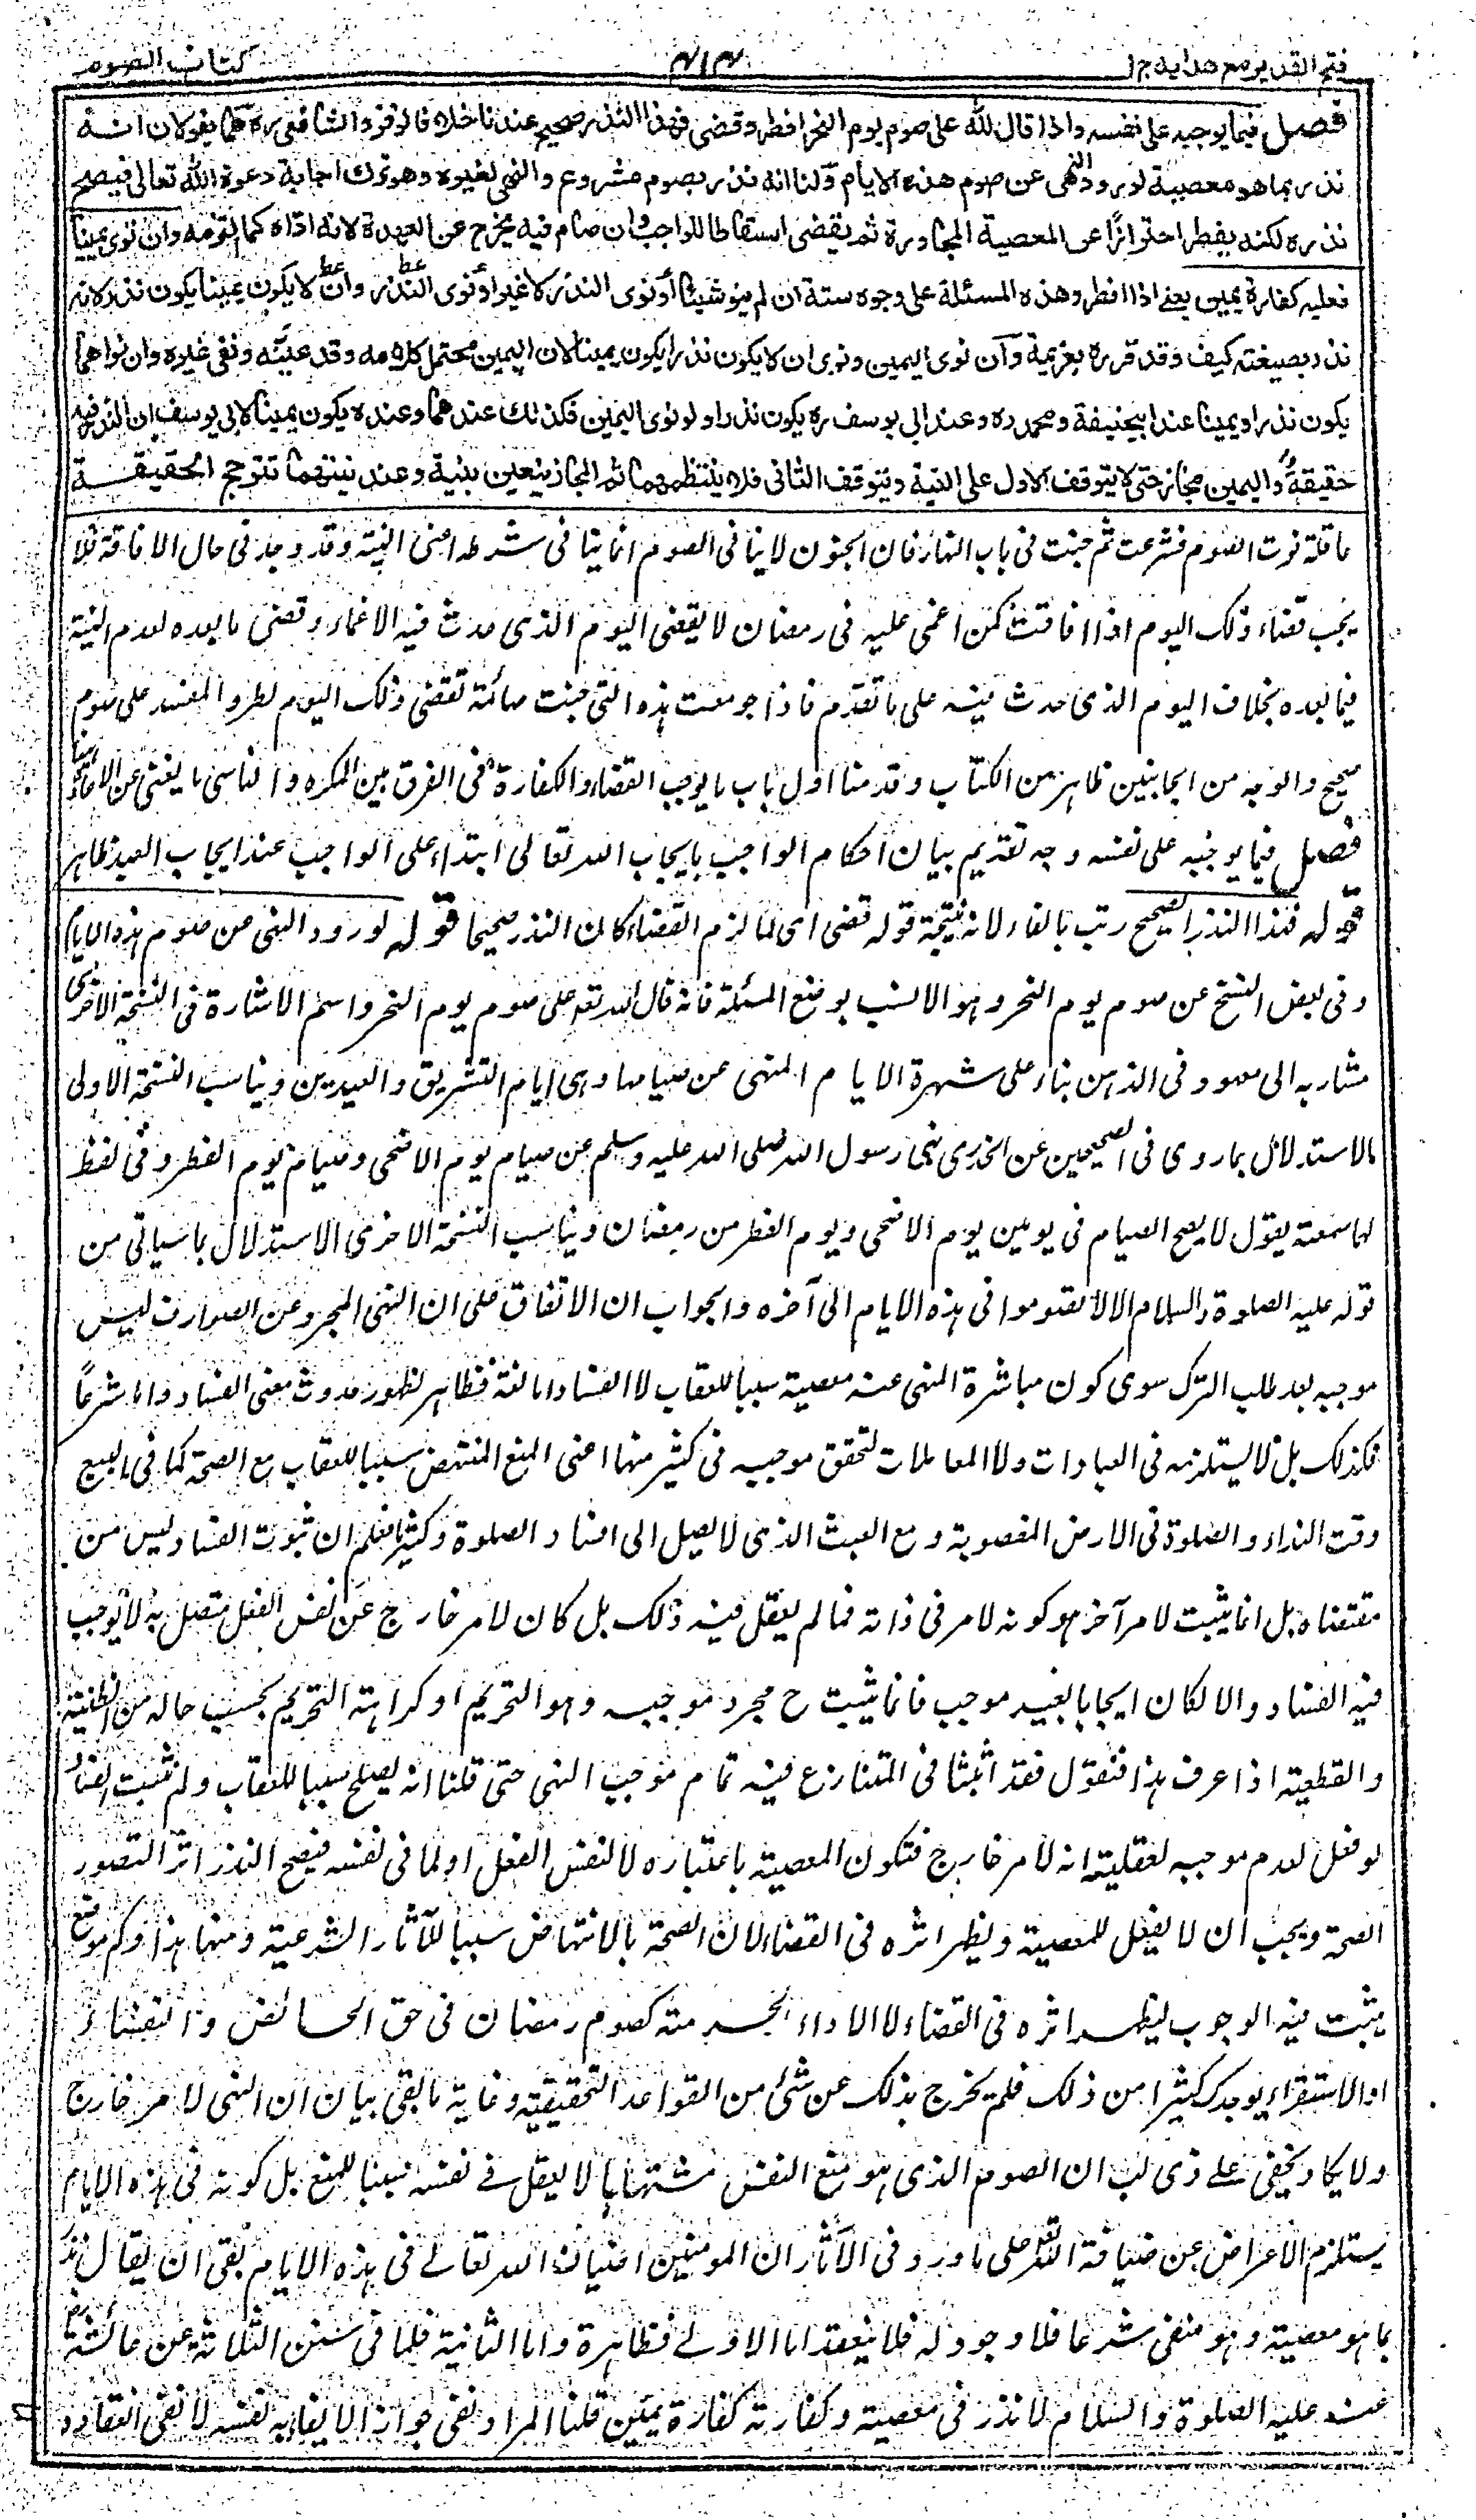 فتح القدير مع هدايه ج ا
٣٠١٣
كتاب الصوم
فصل فيما يوجبه على نفسه واذا قال لله على صوم يوم النحر افطر وقضى فهذا النذر صحيح عندنا خلافا لزفر والشافعى ره هما يقولان انه
نذر بما هو معصية لورود النهى عن صوم هذه الايام ولنا انه نذر بصوم مشروع والنهى لغيره وهو ترك اجابة دعوة الله تعالى فيصح
نذره لكنه يفطر احترازًا عن المعصية المجاورة ثم يقضى اسقاطا للواجب وان صام فيه يخرج عن العهدة لانه اداه كما التزمه وان نوى يمينا
فعليه كفارة يمين يعنى اذا افطر وهذه المسئلة على وجوه ستة ان لم ينو شيئا أو نوى النذر لا غير او نوى النذر وان لا يكون يمينا يكون نذرا لانه
نذر بصيغته كيف وقد قرره بعزيمة وان نوى اليمين ونوى ان لا يكون نذرا يكون يمينا لان اليمين محتمل كلامه وقد عينه ونفى غيره وان نواهما
يكون نذرا ويمينا عند ابيحنيفة ومحمد ره وعند ابى يوسف ره يكون نذرا ولو نوى اليمين فكذلك عندهما وعنده يكون يمينا لابى يوسف ان النذر فيه
حقيقة واليمين مجاز حتى لا يتوقف الاول على النية ويتوقف الثانى فلا ينتظمهما ثم المجاز يتعين بنية وعند نيتهما تترجح الحقيقة
عاقلة نوت الصوم فشرعت ثم جنت فى باب النهار فان الجنون لا ينافى الصوم انما ينافى شرطه اعنى النية وقد وجد فى حال الافاقة فلا
يجب قضاء ذلك اليوم اذا افاقت كمن اغمى عليه فى رمضان لا يقضى اليوم الذى حدث فيه الاغماء وقضى ما بعده لعدم النية
فيما بعده بخلاف اليوم الذى حدث فيه على ما تقدم فاذا جومعت هذه التى جنت صائمة تقضى ذلك اليوم لطرو المفسد على صوم
صحيح والوجه من الجانبين ظاهر من الكتاب وقدمنا اول باب ما يوجب القضاء والكفارة فى الفرق بين المكره والناسى ما يغنى عن الاعادة
فصل فيما يوجبه على نفسه وجه تقديم بيان احكام الواجب بايجاب الله تعالى ابتداء على الواجب عند ايجاب العبد ظاهر
قوله فهذا النذر الصحيح رتب بالفاء لانه نتيجة قوله قضى اى لما لزم القضاء كان النذر صحيحا قوله لورود النهى عن صوم هذه الايام
وفى بعض النسخ عن صوم يوم النحر وهو الانسب بوضع المسئلة فانه قال لله تعـ على صوم يوم النحر واسم الاشارة فى النسخة الاخرى
مشار به الى معهود فى الذهن بناء على شهرة الايام المنهى عن صيامها وهى ايام التشريق والعيدين ويناسب النسخة الاولى
الاستدلال بما روى فى الصحيحين عن الخدرى نهى رسول الله صلى الله عليه وسلم عن صيام يوم الاضحى وصيام يوم الفطر وفى لفظ
لهما سمعته يقول لا يصح الصيام فى يومين يوم الاضحى ويوم الفطر من رمضان ويناسب النسخة الاخرى الاستدلال بما سياتى من
قوله عليه الصلوة والسلام الا لا تصوموا فى هذه الايام الى آخره والجواب ان الاتفاق على ان النهى المجرد عن الصوارف ليس
موجبه بعد طلب الترك سوى كون مباشرة المنهى عنه معصية سببا للعقاب لا الفساد اما لغة فظاهر لظهور حدوث معنى الفساد واما شرعًا
فكذلك بل لا يستلزمه فى العبادات ولا المعاملات لتحقق موجبه فى كثير منها اعنى المنع المنتهض سببا للعقاب مع الصحة كما فى البيع
وقت النداء والصلوة فى الارض المغصوبة ومع العبث الذى لا يصل الى افساد الصلوة وكثير فعلم ان ثبوت الفساد ليس من
مقتضاه بل انما يثبت لامر آخر هو كونه لامر فى ذاته فما لم يعقل فيه ذلك بل كان لامر خارج عن نفس الفعل متصل به لا يوجب
فيه الفساد والا لكان ايجابا بغير موجب فانما يثبت ح مجرد موجبه وهو التحريم او كراهة التحريم بحسب حاله من الظنية
والقطعية اذا عرف هذا فنقول فقد اثبتنا فى المتنازع فيه تمام موجب النهى حتى قلنا انه يصلح سببا للعقاب ولم نثبت الفساد
لو فعل لعدم موجبه لعقلية انه لامر خارج فتكون المعصية باعتباره لا لنفس الفعل او لما فى نفسه فيصح النذر اثر التصور
الصحة ويجب ان لا يفعل للمعصية ويظهر اثره فى القضاء لان الصحة بالانتهاض سببا للآثار الشرعية ومنها هذا وكم موضع
يثبت فيه الوجوب ليظهر اثره فى القضاء لا الاداء لحرمته كصوم رمضان فى حق الحائض والنفساء
اذ الاستقراء يوجدك كثيرا من ذلك فلم يخرج بذلك عن شئ من القواعد التحقيقية وغاية ما بقى بيان ان النهى لامر خارج
ولا يكاد يخفى على ذى لب ان الصوم الذى هو منع النفس مشتهاها لا يعقل فى نفسه سببا للمنع بل كونه فى هذه الايام
يستلزم الاعراض عن ضيافة الله تعـ على ما ورد فى الآثار ان المومنين اضياف الله تعالے فى هذه الايام بقى ان يقال نذر
بما هو معصية وهو منفى شرعا فلا وجود له فلا ينعقد اما الاولے فظاهرة واما الثانية فلما فى سنن الثلاثة عن عائشة رض
عنه عليه الصلوة والسلام لا نذر فى معصية وكفارته كفارة يمين قلنا المراد نفى جواز الايفاء به نفسه لا نفى انعقاده